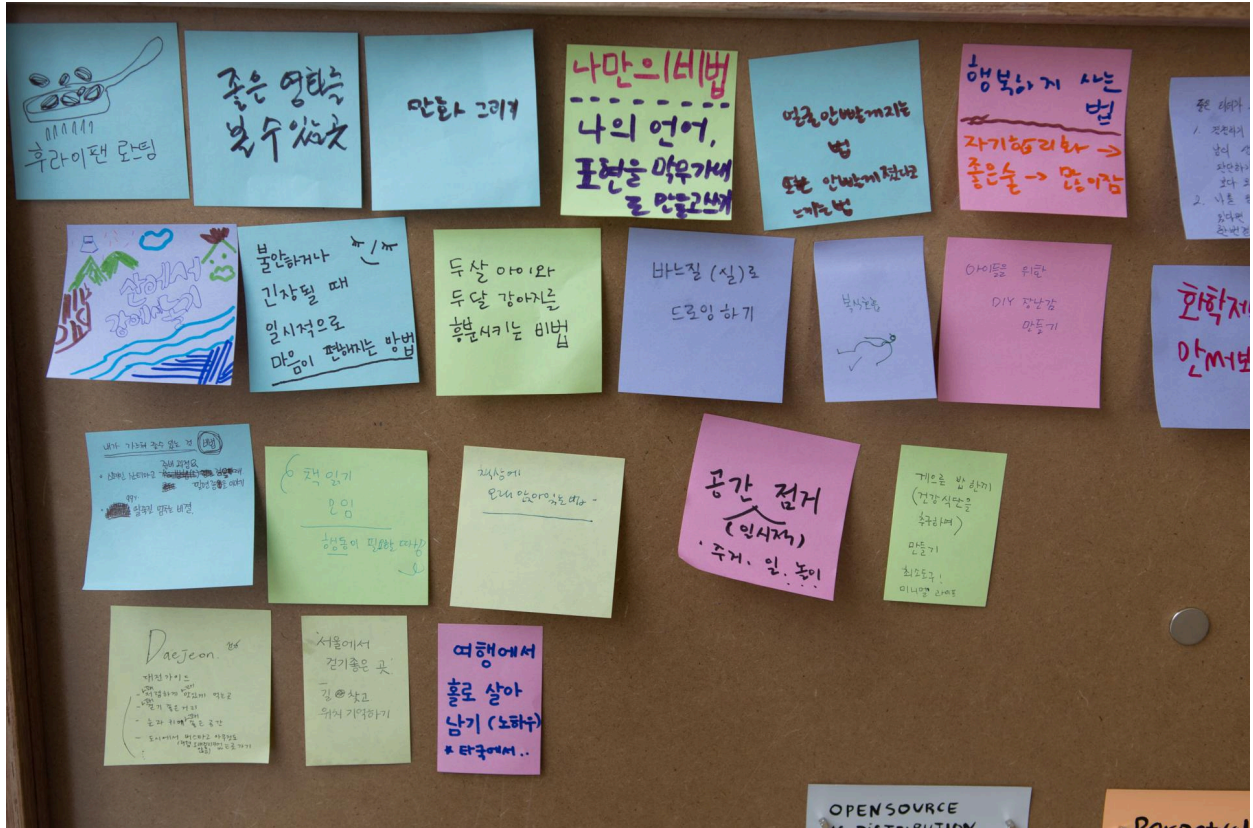 후라이팬 로스팅
좋은 영화를
볼 수 있는 곳
만화 그리기
나만의 비법
나의 언어,
표현을 막무가내
로 만들고 쓰기
얼굴 안빨개지는
법
또는 안빨개졌다고
느끼는 법
행복하게 사는
법
자기합리화 →
좋은술 → 많이잠
1.
2. 나를
산에서
강에서 놀기
불안하거나
긴장될 때
일시적으로
마음이 편해지는 방법
두 살 아이와
두달 강아지를
흥분시키는 비법
바느질 (실)로
드로잉 하기
복식호흡
아이들을 위한
DIY 장난감
만들기
화학제
안써보
내가 가르쳐 줄수 있는 건 비법
비결
책 읽기
모임
행동이 필요할
책상에
오래 앉아있는 법
공간 점거
(일시적)
· 주거. 일. 놀이
게으른 밥 한끼
(건강식단을
추구하며)
만들기
최소도구!
미니멀
Daejeon.
대전가이드
서울에서
걷기좋은 곳
길 찾고
위치 기억하기
여행에서
홀로 살아
남기 (노하우)
* 타국에서..
OPENSOURCE
DISTRIBUTION